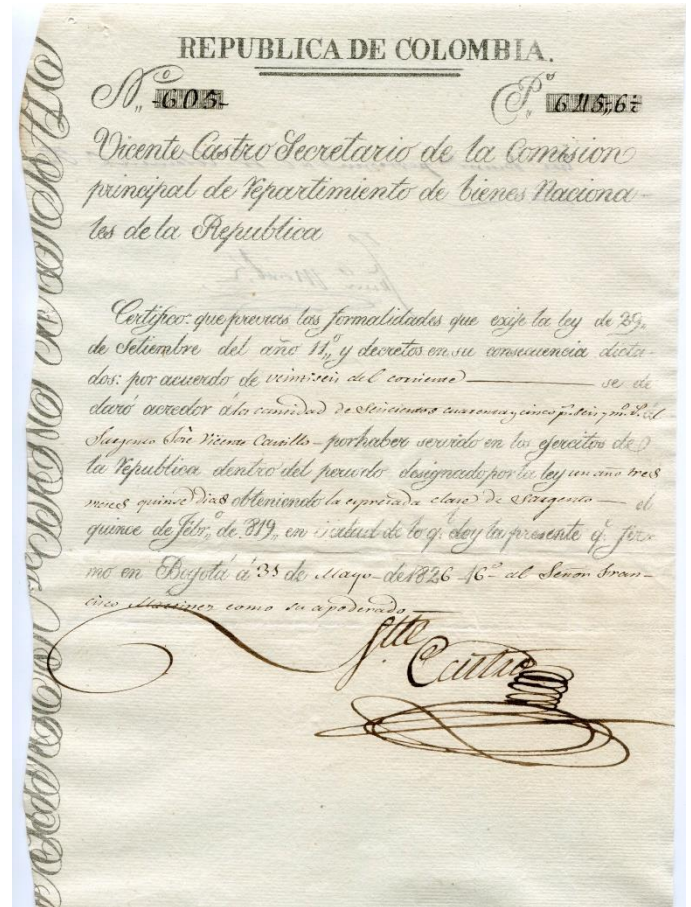 REPUBLICA DE COLOMBIA.
N.º 605 P.s 645,,6½
Vicente Castro Secretario de la Comision
principal de Repartimiento de bienes Naciona-
les de la Republica
Certifico: que previas las formalidades que exije la ley de 29,,
de Setiembre del año 11,,º y decretos en su consecuencia dicta-
dos: por acuerdo de veintiseis del corriente — se de
claró acredor á la cantidad de Seiscientos cuarenta y cinco p.s seis y m.º r.s al
Sargento José Vicente Castillo — por haber servido en los ejercitos de
la Republica dentro del periodo designado por la ley un año tres
meses quince dias obteniendo la espresada clase de Sargento — el
quince de Febr.,,º de 819,, en de lo q.e doy la presente q.e fir-
mo en Bogotá á 31 de Mayo - de 1826 - 16º - al Señor Fran-
cisco Martinez como su apoderado —
Castro